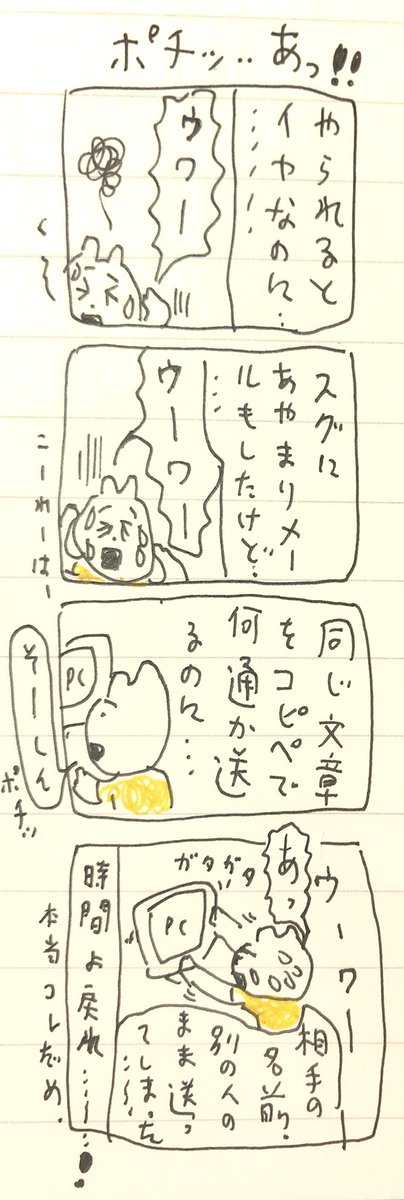 ポチッ‥あっ!!
やられると
イヤなのに‥
‥‥‥!
ウワー
く〜〜
スグに
あやまりメー
ルもしたけど‥
‥‥
ウーワー
こーれーはー
同じ文章
をコピペで
何通か送
るのに‥‥
PC
そーしん
ポチッ
ウーワー
あっ
ガタガタ
PC
相手の
名前、
別の人の
まま送っ
てしまった
時間よ戻れ‥‥!
本当コレだめ.